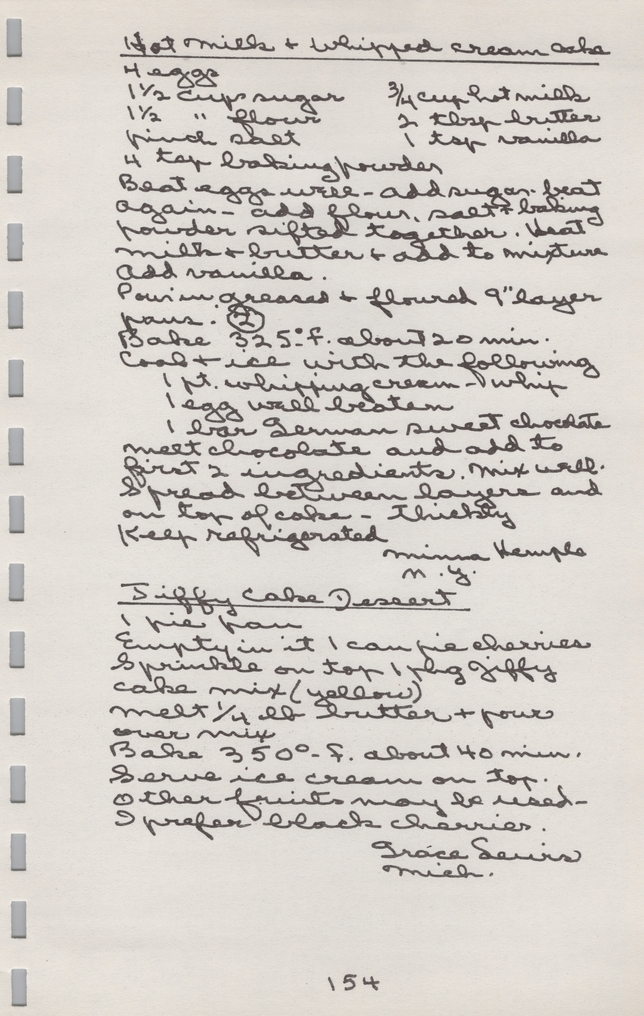 Hot Milk + Whipped Cream Cake
4 eggs
1 1/2 cups sugar 3/4 cup hot milk
1 1/2 " flour 2 tbsp butter
pinch salt 1 tsp vanilla
4 tsp baking powder
Beat eggs well - add sugar - beat
again - add flour, salt + baking
powder sifted together. Heat
milk + butter + add to mixture
Add vanilla.
Pour in greased + floured 9" layer
pans. (2)
Bake 325° F. about 20 min.
Cool + ice with the following
1 pt. whipping cream - whip
1 egg well beaten
1 bar German sweet chocolate
melt chocolate and add to
first 2 ingredients. Mix well.
Spread between layers and
on top of cake - thickly
Keep refrigerated
Minna Hemple
N.Y.
Jiffy Cake Dessert
1 pie pan
Empty in it 1 can pie cherries
Sprinkle on top 1 pkg Jiffy
cake mix (yellow)
Melt 1/4 lb butter + pour
over mix
Bake 350° - F. about 40 min.
Serve ice cream on top.
Other fruits may be used -
I prefer black cherries.
Grace
Mich.
154